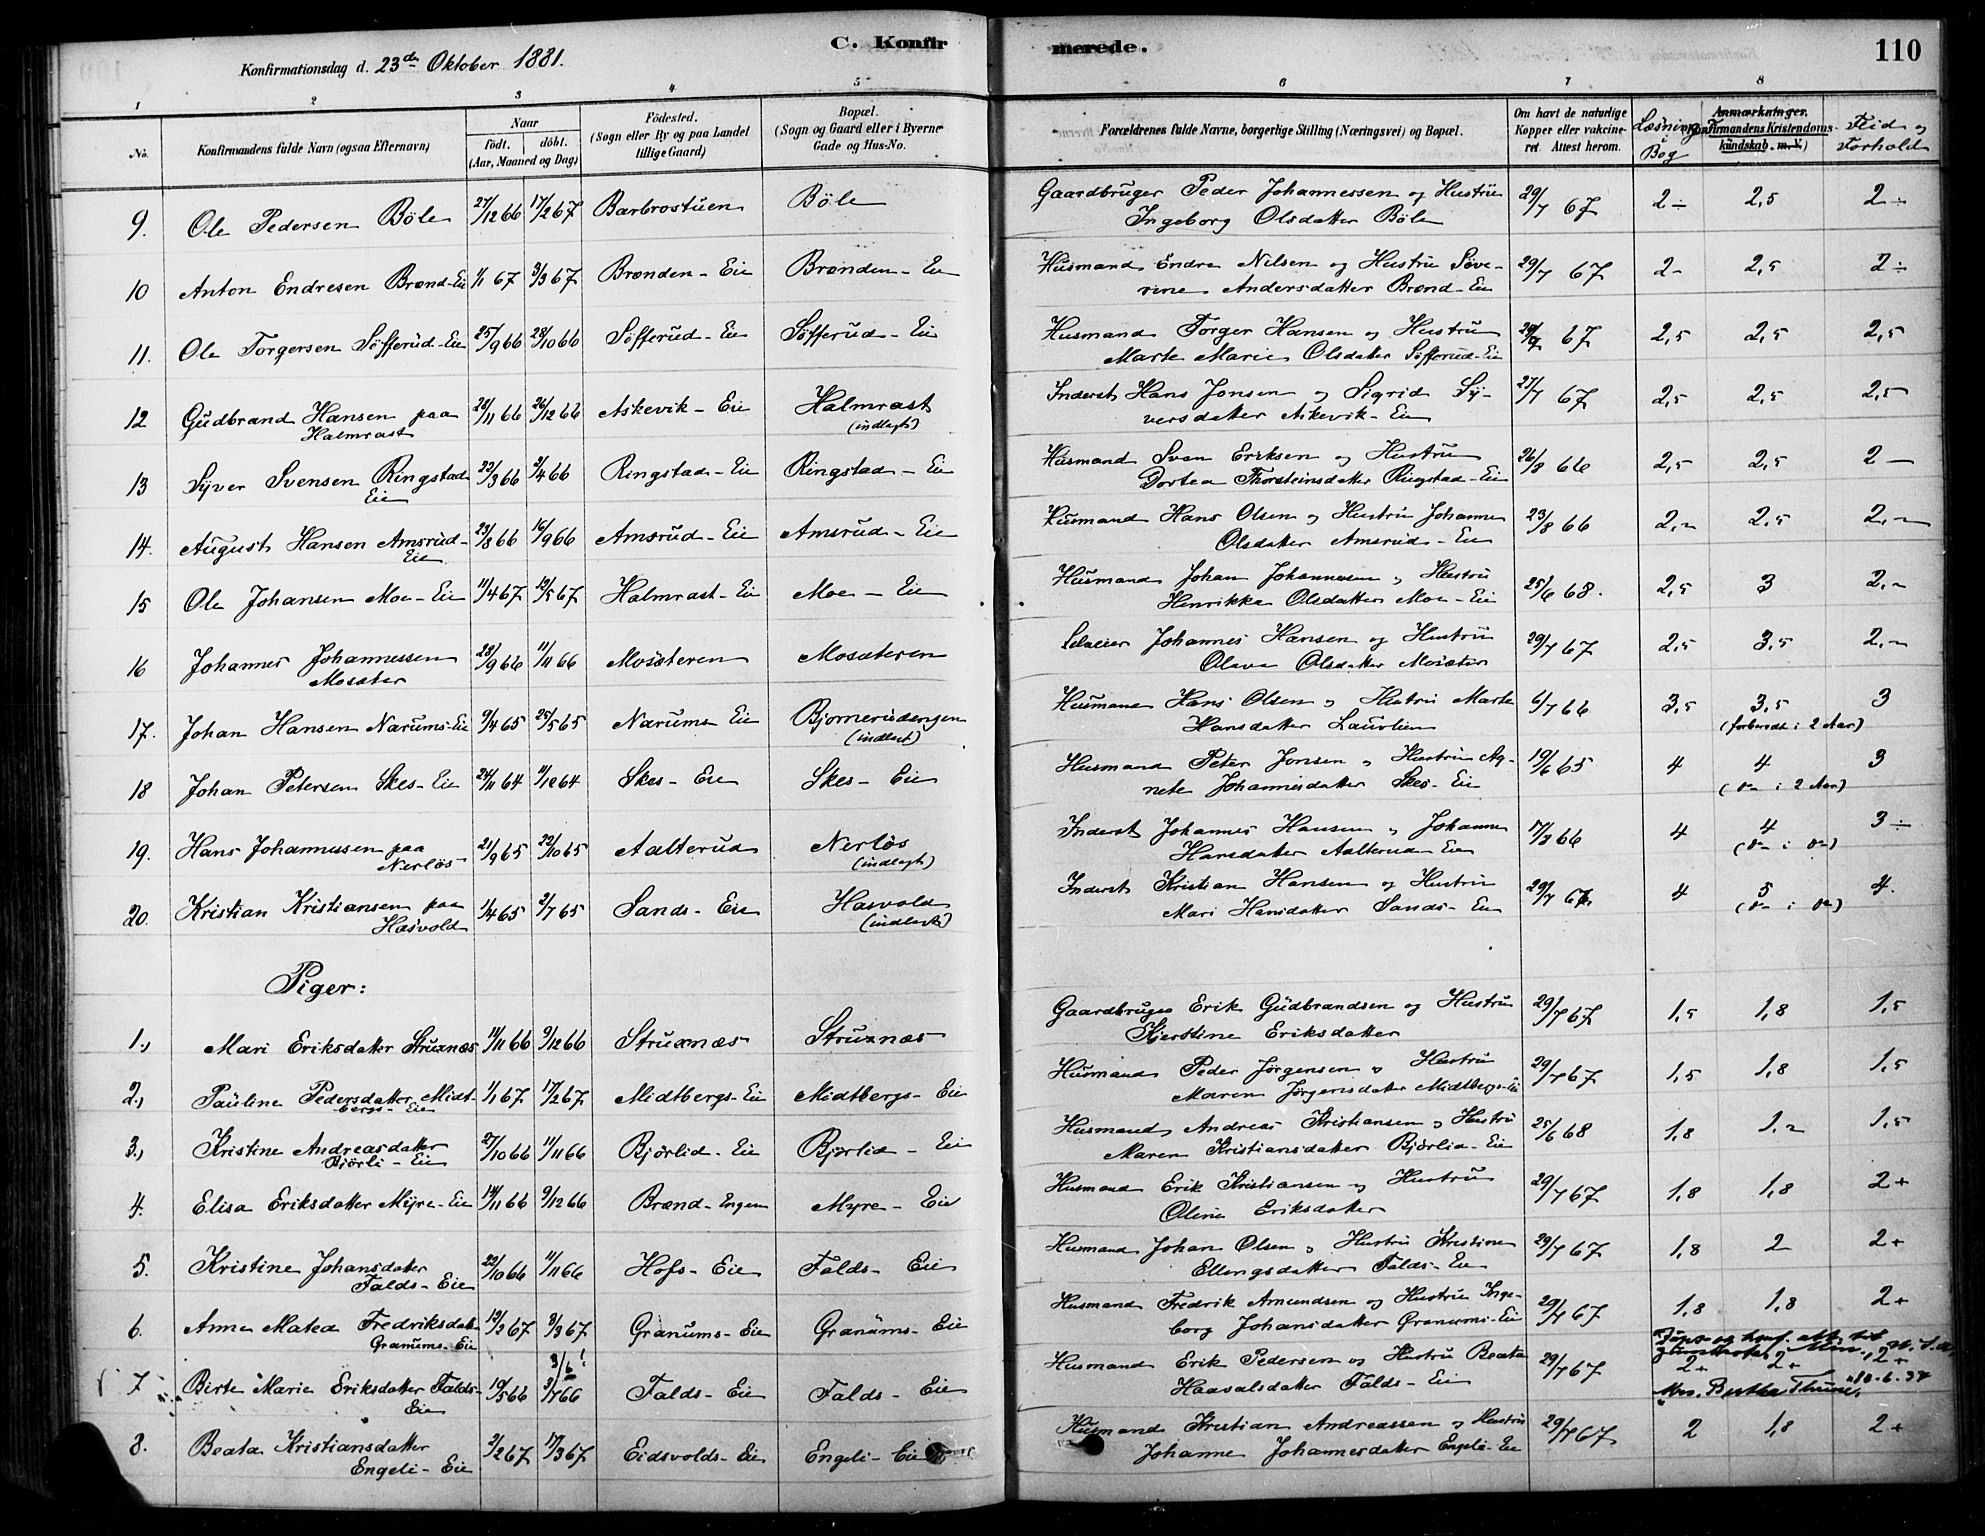 C. Konfirmerede.
110
Konfirmationsdag d. 23de Oktober 1881.
1 2 3 4 5 6 7 8
No. Konfirmandens fulde Navn (ogsaa Efternavn) Naar født. døbt. (Aar, Maaned og Dag) Fødested. (Sogn eller By og paa Landet tillige Gaard) Bopæl. (Sogn og Gaard eller i Byerne Gade og Hus-No. Forældrenes fulde Navne, borgerlige Stilling (Næringsvei) og Bopæl. Om havt de naturlige Kopper eller vakcineret. Attest herom. Læsning Bog Anmærkninger. (Konfirmandens Kristendomskundskab m. V.) Flid og Forhold
9. Ole Pedersen Böle 27/12 66 17/2 67 Barbrostuen Böle Gaardbruger Peder Johannessen og Hustru 29/7 67 2÷ 2,5 2÷
Ingeborg Olsdatter Böle
10 Anton Endresen Brænd-Eie 1/1 67 3/3 67 Brænden-Eie Brænden-Eie Husmand Endre Nilsen og Hustru Söve- 29/7 67 2- 2,5 2÷
rine Andersdatter Brænd-Eie
11. Ole Torgersen Söfferud-Eie 25/9 66 28/10 66 Söfferud-Eie Söfferud-Eie Husmand Torger Hansen og Hustru 67 2,5 2,5 2,5
Marte Marie Olsdatter Söfferud-Eie
12 Gudbrand Hansen paa 28/11 66 26/12 66 Askevik-Eie Halmrast Inderst Hans Jonsen og Sigrid Sy- 27/7 67 2,5 2,5 2,5
Halmrast (indlagt) versdatter Askevik-Eie
13 Syver Svensen Ringstad 23/3 66 /4 66 Ringstad-Eie Ringstad-Eie Husmand Sven Eriksen og Hustru 26/8 66 2,5 2,5 2-
Eie Dortea Thorsteinsdatter Ringstad-Eie
14. August Hansen Amsrud- 23/8 66 16/9 66 Amsrud-Eie Amsrud-Eie Husmand Hans Olsen og Hustru Johanne 23/8 66 2,- 2,5 2,-
Eie Olsdatter Amsrud-Eie
15 Ole Johansen Moe-Eie 11/4 67 12/5 67 Halmrast-Eie Moe-Eie Husmand Johan Johannesen og Hustru 25/6 68. 2,5 3 2,-
Henrikka Olsdatter Moe-Eie
16 Johannes Johannessen 23/9 66 11/11 66 Mosæteren Mosæteren Selveier Johannes Hansen og Hustru 29/7 67 2,5 3,5 2,-
Mosæter Olava Olsdatter Mosæter
17. Johan Hansen Narums-Eie 9/4 65 25/5 65 Narums Eie Bjorneridengen Husmand Hans Olsen og Hustru Marte 6/7 66 3,5 3,5 3
(indlagt) Hansdatter Lauvlien (forberedt i 2 Aar)
18 Johan Petersen Skes-Eie 24/11 64 11/12 64 Skes-Eie Skes-Eie Husmand Peter Jonsen og Hustru Ag- 19/6 65 4 4 3
nete Johannesdatter Skes-Eie (do i 2 Aar)
19. Hans Johannessen paa 21/9 65 22/10 65 Aalterud Nerlös Inderst Johannes Hansen og Johanne 17/3 66 4 4 3÷
Nerlös (indlagt) Hansdatter Aalterud-Eie (do i do)
20. Kristian Kristiansen paa 1/4 65 2/7 65 Sands-Eie Hasvold Inderst Kristian Hansen og Hustru 29/7 67. 4 5 4.
Hasvold (indlagt) Mari Hansdatter Sands-Eie (do i do)
Piger:
1., Mari Eriksdatter Struxnæs 14/11 66 9/12 66 Struxnæs Struxnæs Gaardbruger Erik Gudbrandsen og Hustru 29/7 67 1,5 1,8 1,5
Kjerstine Eriksdatter
2., Pauline Pedersdatter Midt- 1/1 67 17/2 67 Midtbergs-Eie Midtbergs-Eie Husmand Peder Jörgensen og Hustru 29/7 67 1,5 1,8 1,5
bergs-Eie Maren Jörgensdatter Midtbergs-Eie
3., Kristine Andreasdatter 27/10 66 11/11 66 Björlid-Eie Bjørlid-Eie Husmand Andreas Kristiansen og Hustru 25/6 68 1,8 1,- 1,5
Bjørli-Eie Maren Kristiansdatter Bjørlid-Eie
4. Elisa Eriksdatter Myre-Eie 14/11 66 9/12 66 Brænd-Engen Myre-Eie Husmand Erik Kristiansen og Hustru 29/7 67 1,8 1,8 2+
Oline Eriksdatter
5. Kristine Johansdatter 22/10 66 11/11 66 Hofs-Eie Falds-Eie Husmand Johan Olsen og Hustru Kristine 29/7 67 1,8 2 2+
Falds-Eie Ellengsdatter Falds-Eie
6. Anne Matea Fredriksdatter 67 3/3 67 Granums-Eie Granums-Eie Husmand Fredrik Amundsen og Hustru Inge- 29/7 67 1,8 1,8 2+
Granums-Eie borg Johansdatter Granums-Eie
7 Birte Marie Eriksdatter Falds- 19/5 66 3/6! 3/7 66 Falds-Eie Falds-Eie Husmand Erik Pedersen og Hustru Beata 29/7 67 2+ 2+ 2+
Eie Haavalsdatter Falds-Eie Mrs. Bertha Thune, 18-6-34
8. Beata Kristiansdatter 2/2 67 17/3 67 Eidsvolds-Eie Engeli-Eie Husmand Kristian Andreassen og Hustru 29/7 67 2 1,8 2+
Engeli-Eie Johanne Johannesdatter Engeli-Eie